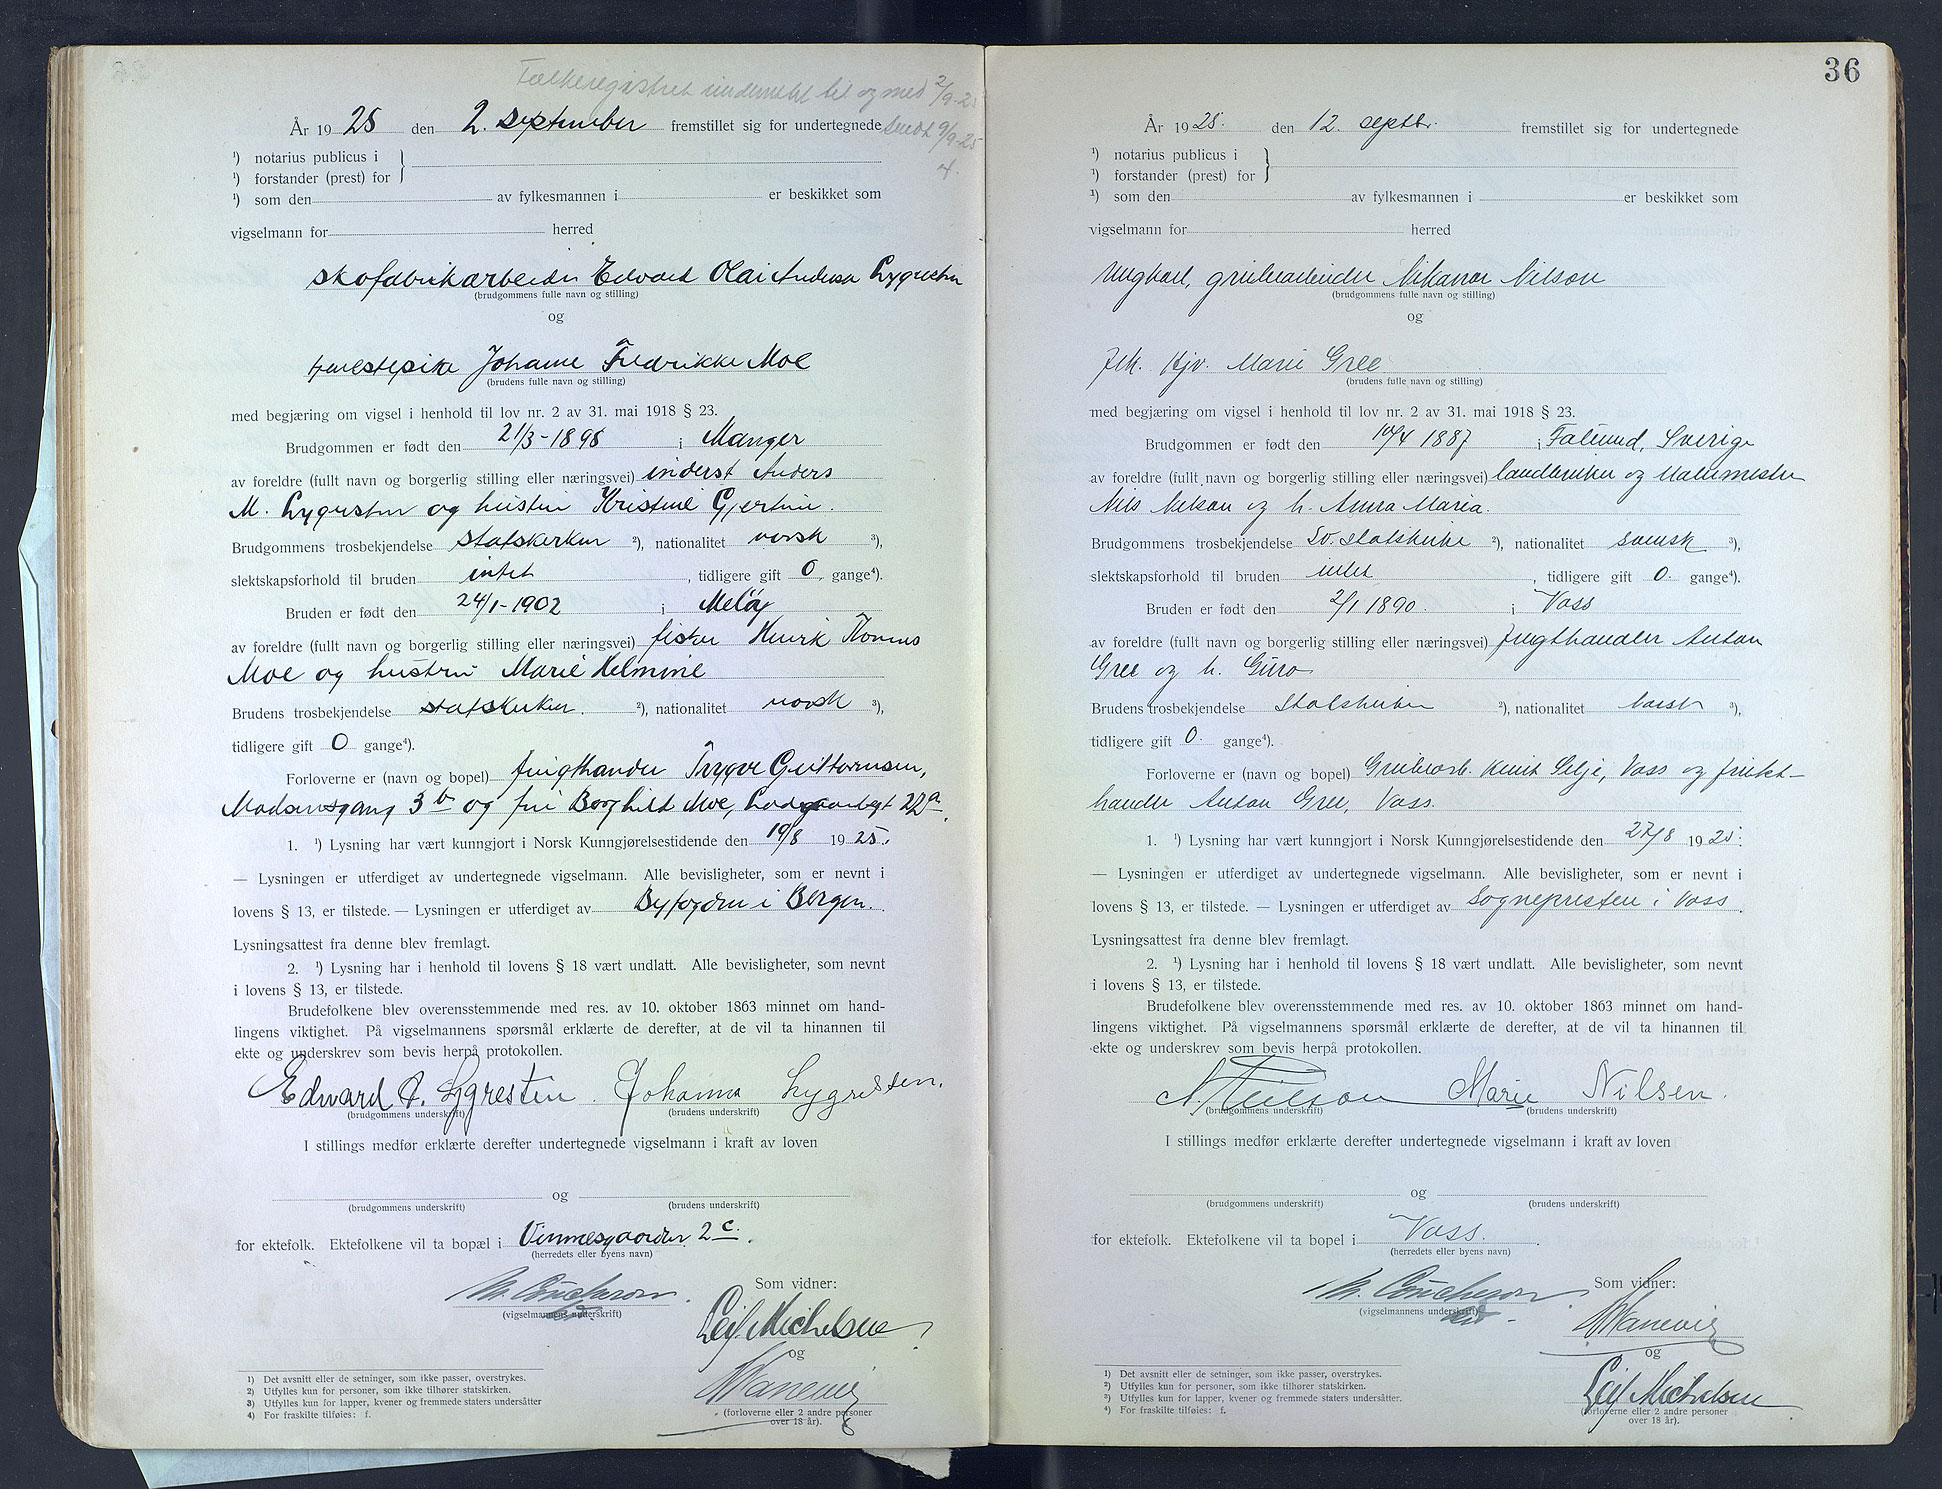 Folkeregistret underrettet til og med 2/9-25
År 19 25 den 2. september fremstillet sig for undertegnede
sendt 9/9-25
¹) notarius publicus i
¹) forstander (prest) for
¹) som den av fylkesmannen i er beskikket som
vigselmann for herred
skofabrikarbeider Edvard Olai Anderssen Lygresten
(brudgommens fulle navn og stilling)
og
tjenestepike Johanne Fredrikke Moe
(brudens fulle navn og stilling)
med begjæring om vigsel i henhold til lov nr. 2 av 31. mai 1918 § 23.
Brudgommen er født den 21/3-1898 i Manger
av foreldre (fullt navn og borgerlig stilling eller næringsvei) inderst Anders
M. Lygresten og hustru Kristine Gjertine.
Brudgommens trosbekjendelse statskirken ²), nationalitet norsk ³),
slektskapsforhold til bruden intet , tidligere gift 0 gange⁴).
Bruden er født den 24/1-1902 i Meløy
av foreldre (fullt navn og borgerlig stilling eller næringsvei) fisker Henrik
Moe og hustru Marie Helmine
Brudens trosbekjendelse statskirken. ²), nationalitet norsk ³),
tidligere gift 0 gange⁴).
Forloverne er (navn og bopel) frugthandler Trygve Guttormsen,
Madamsgang 3b og frk Borghild Moe, 22a.
1. ¹) Lysning har vært kunngjort i Norsk Kunngjørelsestidende den 19/8 19 25.
— Lysningen er utferdiget av undertegnede vigselmann. Alle bevisligheter, som er nevnt i
lovens § 13, er tilstede. — Lysningen er utferdiget av Byfogden i Bergen.
Lysningsattest fra denne blev fremlagt.
2. ¹) Lysning har i henhold til lovens § 18 vært undlatt. Alle bevisligheter, som nevnt
i lovens § 13, er tilstede.
Brudefolkene blev overensstemmende med res. av 10. oktober 1863 minnet om hand-
lingens viktighet. På vigselmannens spørsmål erklærte de derefter, at de vil ta hinannen til
ekte og underskrev som bevis herpå protokollen.
Edward A. Lygresten. Johanna Lygresten.
(brudgommens underskrift) (brudens underskrift)
I stillings medfør erklærte derefter undertegnede vigselmann i kraft av loven
og
(brudgommens underskrift) (brudens underskrift)
for ektefolk. Ektefolkene vil ta bopæl i Vinmesgaarden 2c.
(herredets eller byens navn)
Som vidner:
(vigselmannens underskrift)
Leif Michelsen
og
(forloverne eller 2 andre personer
over 18 år).
1) Det avsnitt eller de setninger, som ikke passer, overstrykes.
2) Utfylles kun for personer, som ikke tilhører statskirken.
3) Utfylles kun for lapper, kvener og fremmede staters undersåtter
4) For fraskilte tilføies: f.
36
År 19 25. den 12. septbr. fremstillet sig for undertegnede
¹) notarius publicus i
¹) forstander (prest) for
¹) som den av fylkesmannen i er beskikket som
vigselmann for herred
Ungkarl, grubearbeider Nikanor Nilson
(brudgommens fulle navn og stilling)
og
Marie Gree
(brudens fulle navn og stilling)
med begjæring om vigsel i henhold til lov nr. 2 av 31. mai 1918 § 23.
Brudgommen er født den 10/4 1887 i Falund, Sverige
av foreldre (fullt navn og borgerlig stilling eller næringsvei) landbruker og
Nils Nilson og h. Anna Maria.
Brudgommens trosbekjendelse Sv. statskirke ²), nationalitet svensk ³),
slektskapsforhold til bruden intet , tidligere gift 0. gange⁴).
Bruden er født den 2/1 1890. i Voss
av foreldre (fullt navn og borgerlig stilling eller næringsvei) frugthandler Anton
Gree og h. Guro
Brudens trosbekjendelse Statskirken ²), nationalitet norsk ³),
tidligere gift 0. gange⁴).
Forloverne er (navn og bopel) Grubearb. Knut Gilje, Voss og frukt-
handler Anton Gree, Voss.
1. ¹) Lysning har vært kunngjort i Norsk Kunngjørelsestidende den 27/8 19 25.
— Lysningen er utferdiget av undertegnede vigselmann. Alle bevisligheter, som er nevnt i
lovens § 13, er tilstede. — Lysningen er utferdiget av Sognepresten i Voss.
Lysningsattest fra denne blev fremlagt.
2. ¹) Lysning har i henhold til lovens § 18 vært undlatt. Alle bevisligheter, som nevnt
i lovens § 13, er tilstede.
Brudefolkene blev overensstemmende med res. av 10. oktober 1863 minnet om hand-
lingens viktighet. På vigselmannens spørsmål erklærte de derefter, at de vil ta hinannen til
ekte og underskrev som bevis herpå protokollen.
N. Neilson Marie Nilsen.
(brudgommens underskrift) (brudens underskrift)
I stillings medfør erklærte derefter undertegnede vigselmann i kraft av loven
og
(brudgommens underskrift) (brudens underskrift)
for ektefolk. Ektefolkene vil ta bopel i Voss.
(herredets eller byens navn)
Som vidner:
(vigselmannens underskrift)
og
Leif Michelsen
(forloverne eller 2 andre personer
over 18 år).
1) Det avsnitt eller de setninger, som ikke passer, overstrykes.
2) Utfylles kun for personer, som ikke tilhører statskirken.
3) Utfylles kun for lapper, kvener og fremmede staters undersåtter.
4) For fraskilte tilføies: f.